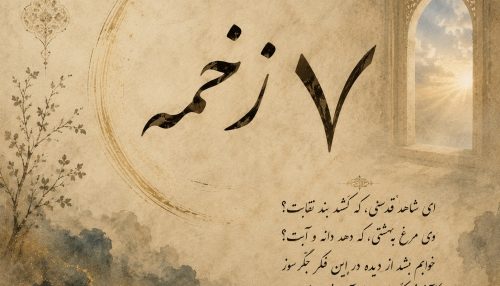 ۷ زخمه
ای شاهد قدسی، که کشد بند نقابت؟
وی مرغ بهشتی، که دهد دانه و آبت؟
خوابم بشد از دیده در این فکر جگر سوز